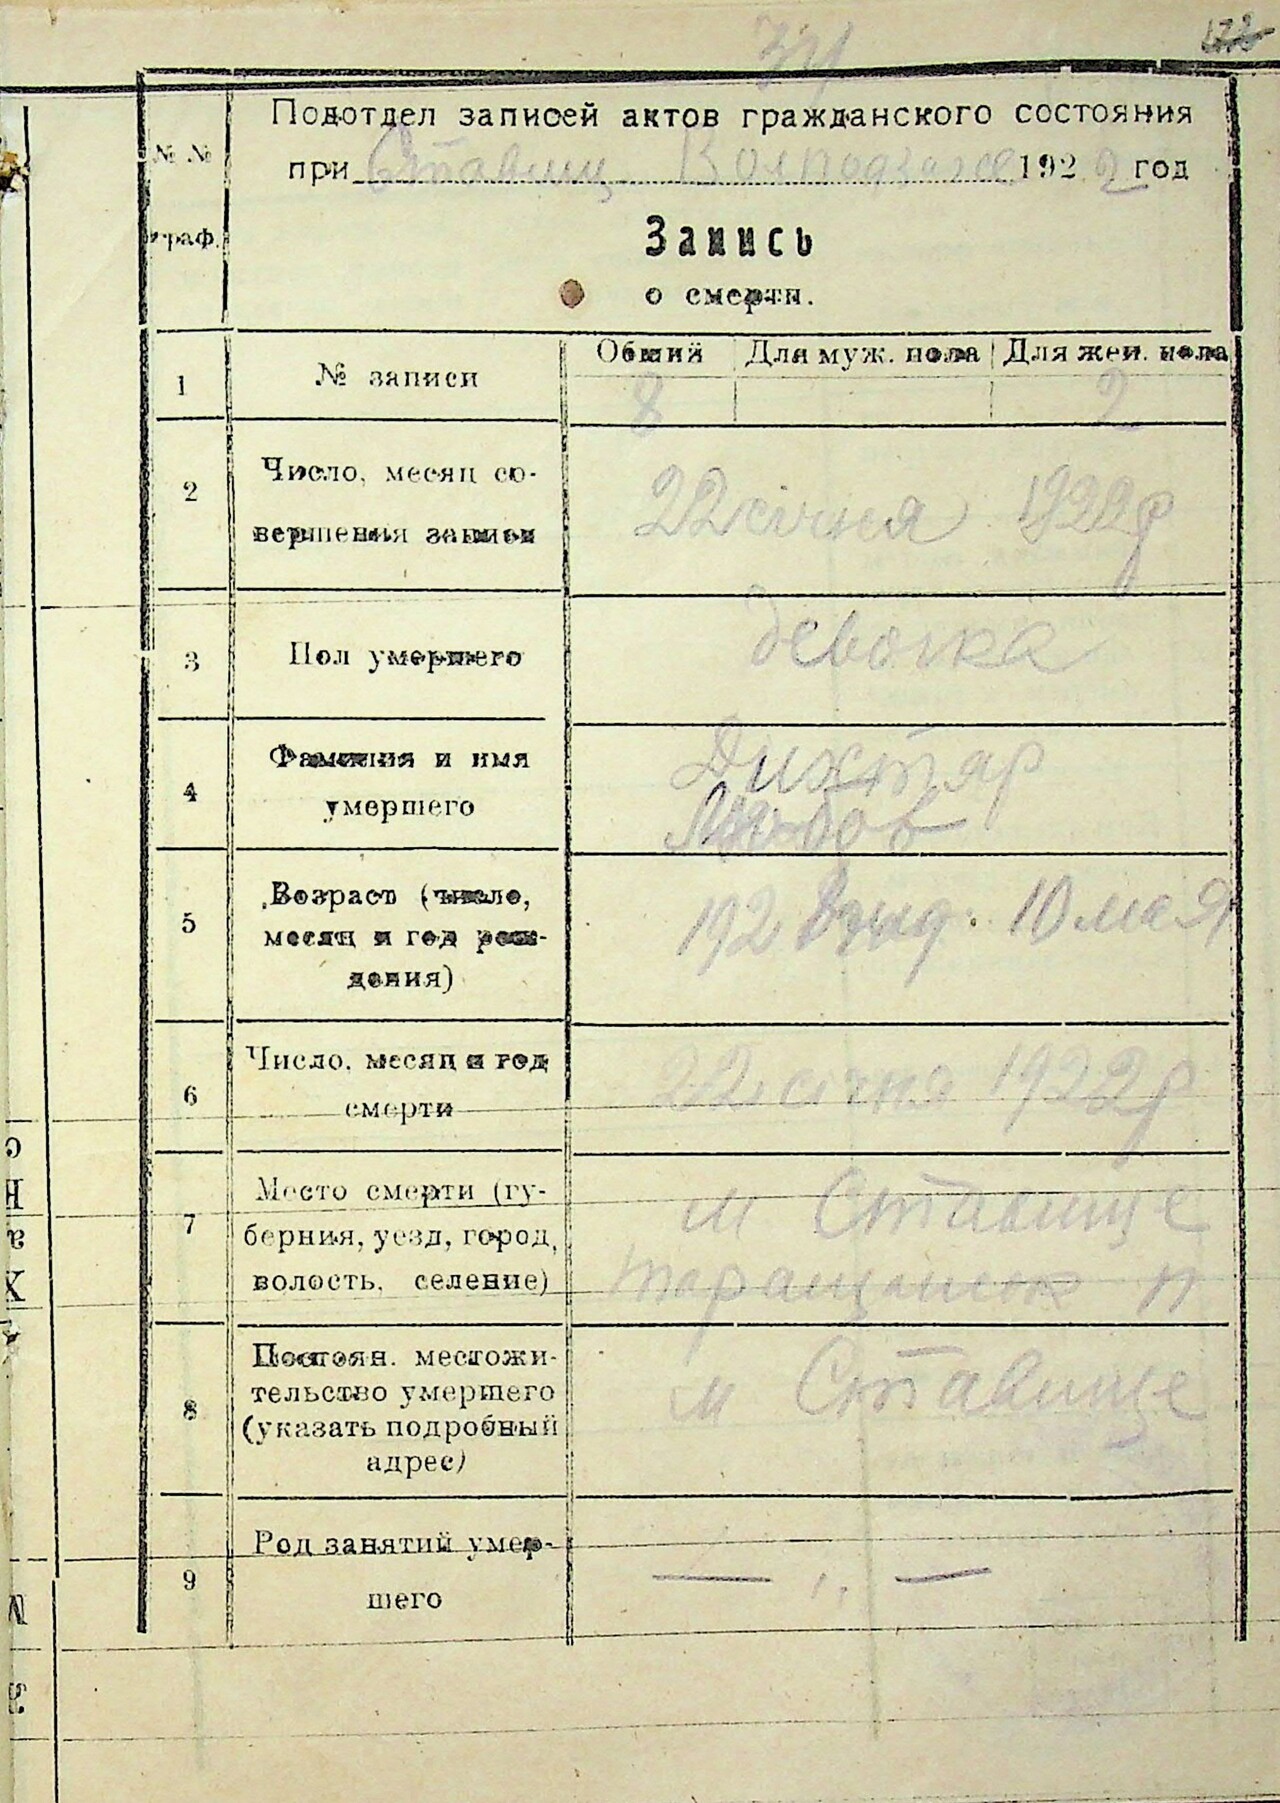 34
Подотдел записей актов гражданского состояния
№ №
при Ставищ Волподзаге 1922 год
граф.
Запись
о смерти.
Общий Для муж. пола Для жен. пола
1 № записи 8 2
2 Число, месяц со-
вершения записи
22 січня 1922 р
3 Пол умершего девочка
4 Фамилия и имя
умершего
Дихтяр
Любов
5 Возраст (число,
месяц и год рож-
дения)
192 10 мая
6 Число, месяц и год
смерти
22 січня 1922 р
7 Место смерти (гу-
берния, уезд, город,
волость, селение)
м Ставище
Таращанск п
8 Постоян. местожи-
тельство умершего
(указать подробный
адрес)
м Ставище
9 Род занятий умер-
шего
— „ —